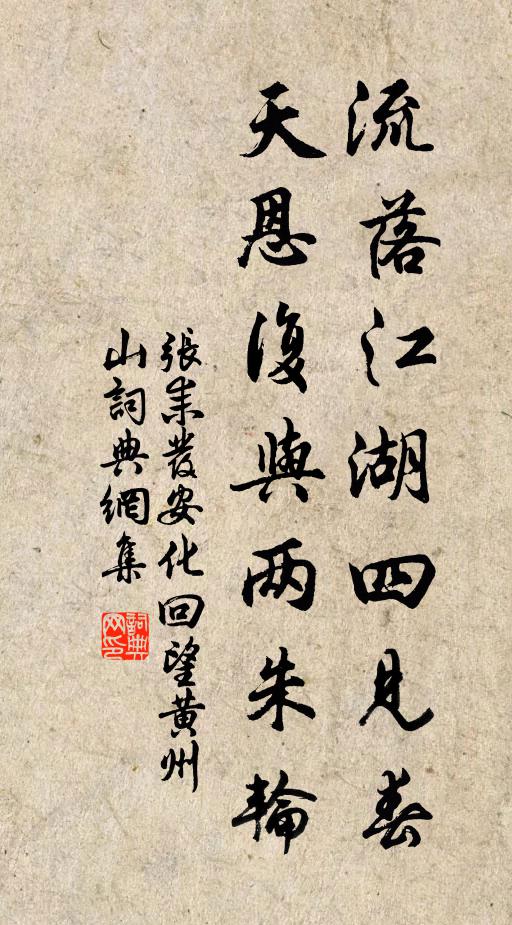 流落江湖四見春
天恩復與兩朱輪
張耒發安化回望黃州
山詞典網集
詞典网印